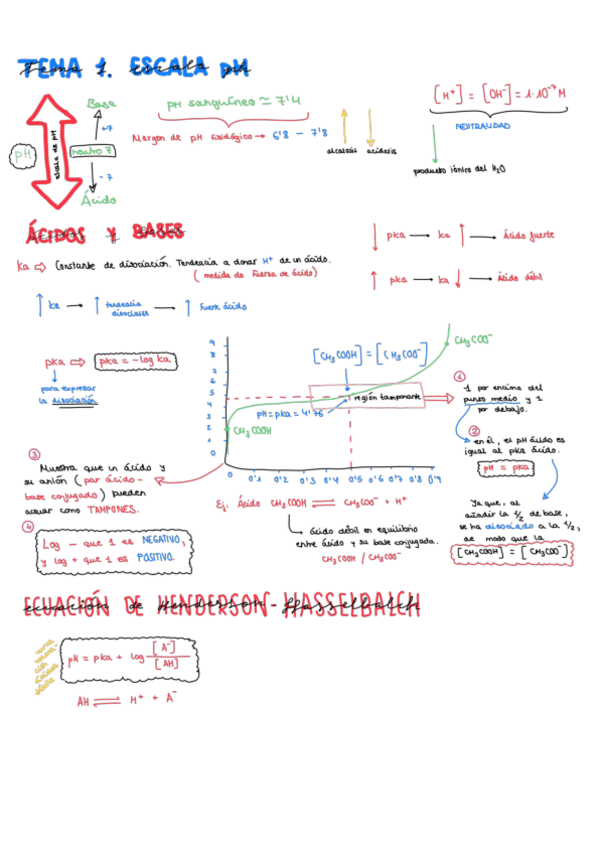 TEMA 1. ESCALA pH
pH
escala de pH
Base
+7
neutro 7
-7
Ácido
pH sanguíneo ≃ 7'4
Margen de pH fisiológico → 6'8 - 7'8
alcalosis
acidosis
[H⁺] = [OH⁻] = 1·10⁻⁷ M
NEUTRALIDAD
producto iónico del H₂O
ÁCIDOS Y BASES
Ka ⇨ Constante de disociación. Tendencia a donar H⁺ de un ácido.
(medida de fuerza de ácido)
↑ Ka → ↑ tendencia disociarse → ↑ Fuerte ácido
↓ pKa → Ka ↑ → Ácido fuerte
↑ pKa → Ka ↓ → Ácido débil
pKa ⇨ pKa = -log Ka
para expresar
la disociación
9
8
7
6
5
4
3
2
1
0
[CH₃COOH] = [CH₃COO⁻]
CH₃COO⁻
región tamponante
pH = pKa = 4'76
CH₃COOH
0 0'1 0'2 0'3 0'4 0'5 0'6 0'7 0'8 0'9
Ej. Ácido CH₃COOH ⇌ CH₃COO⁻ + H⁺
ácido débil en equilibrio
entre ácido y su base conjugada.
CH₃COOH / CH₃COO⁻
①
1 por encima del
punto medio y 1
por debajo.
②
en él, el pH ácido es
igual al pKa ácido.
pH = pKa
Ya que, al
añadir la ½ de base,
se ha disociado a la ½,
de modo que la
[CH₃COOH] = [CH₃COO⁻]
③
Muestra que un ácido y
su anión (par ácido-
base conjugado) pueden
actuar como TAMPONES.
④
Log - que 1 es NEGATIVO,
y log + que 1 es POSITIVO.
ECUACIÓN DE HENDERSON-HASSELBALCH
pH = pKa + log [A⁻] / [AH]
AH ⇌ H⁺ + A⁻